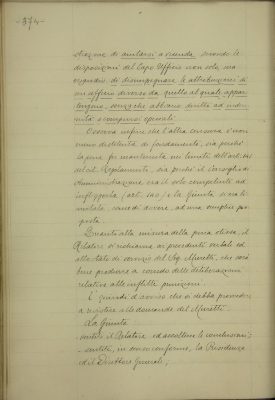 - 374 -
strazione di aiutarsi a vicenda secondo le
disposizioni del Capo Ufficio non solo, ma
eziandio di disimpegnare le attribuzioni di
un ufficio diverso da quello al quale appar-
tengono, senza che abbiano diritto ad inden-
nità o compensi speciali.
Osserva infine che l'altra censura è non
meno destituita di fondamento, sia perchè
la pena fu mantenuta nei limiti dell'art.
del Regolamento, sia perchè il Consiglio di
Amministrazione era il solo competente ad
infliggerla (art. ) e la Giunta si è li-
mitata, come di dovere, ad una semplice pro-
posta.
Quanto alla misura della pena stessa, il
Relatore si richiama ai precedenti verbali ed
allo stato di servizio del Sig. Minetti, che
produrre a corredo delle deliberazioni
relative alle inflitte punizioni.
È quindi d'avviso che si debba provvedere
a resistere alle domande del Minetti.
La Giunta
- udito il Relatore ed accoltene le conclusioni;
- sentiti, in senso conforme, la Presidenza
ed il Direttore Generale;